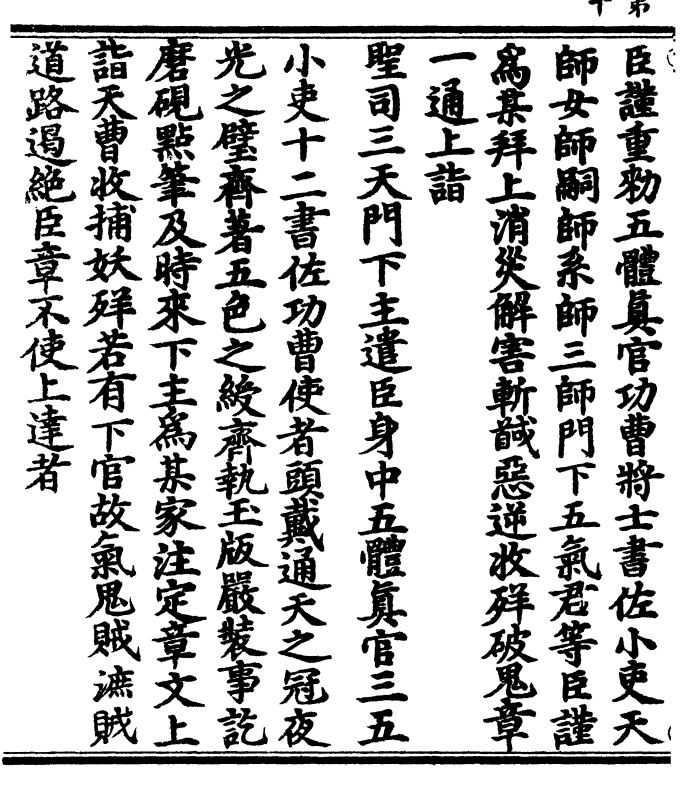 臣謹重勑五體眞官功曹將士書佐小吏天
師女師嗣師系師三師門下五氣君等臣謹
爲某拜上消災解害斬馘惡逆收殃破鬼章
一通上詣
聖司三天門下主遣臣身中五體眞官三五
小吏十二書佐功曹使者頭戴通天之冠夜
光之璧齊著五色之綬齊執玉版嚴裝事訖
磨硯點筆及時來下主爲某家注定章文上
詣天曹收捕妖殃若有下官故氣鬼賊遮賊
道路遏絶臣章不使上達者